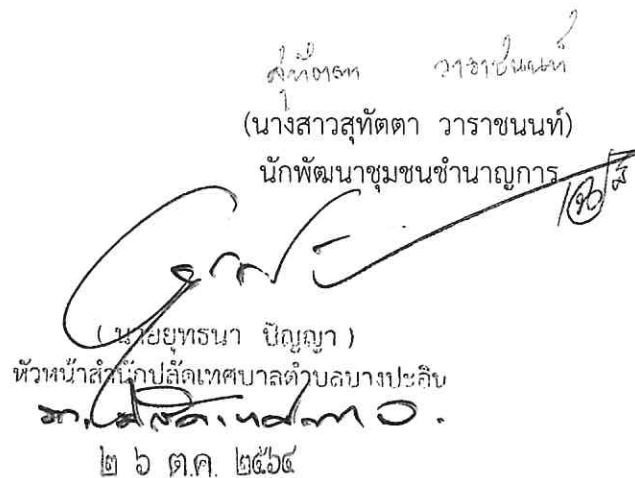 สุทัตตา วาราชนนท์
(นางสาวสุทัตตา วาราชนนท์)
นักพัฒนาชุมชนชำนาญการ
(นายยุทธนา ปัญญา)
หัวหน้าสำนักปลัดเทศบาลตำบลบางปะอิน
๒ ๖ ต.ค. ๒๕๖๔